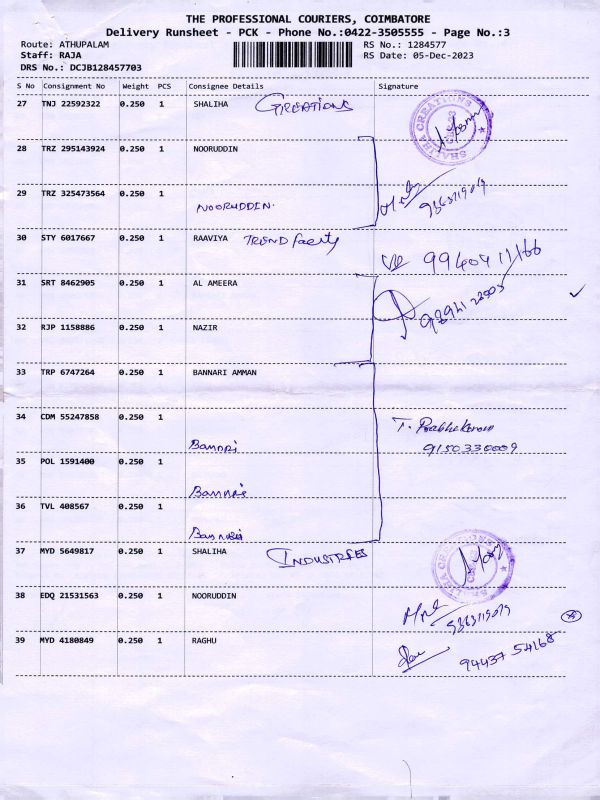 THE PROFESSIONAL COURIERS, COIMBATORE
Delivery Runsheet - PCK - Phone No.:0422-3505555 - Page No.:3
Route: ATHUPALAM RS No.: 1284577
Staff: RAJA RS Date: 05-Dec-2023
DRS No.: DCJB128457703
S No Consignment No Weight PCS Consignee Details Signature
27 TNJ 22592322 0.250 1 SHALIHA CREATIONS
SHALIHA CREATIONS
28 TRZ 295143924 0.250 1 NOORUDDIN
29 TRZ 325473564 0.250 1
NOORUDDIN.
30 STY 6017667 0.250 1 RAAVIYA TREND
31 SRT 8462905 0.250 1 AL AMEERA
32 RJP 1158886 0.250 1 NAZIR
33 TRP 6747264 0.250 1 BANNARI AMMAN
34 CDM 55247858 0.250 1
Bannari
9150330009
35 POL 1591400 0.250 1
Bannari
36 TVL 408567 0.250 1
Bannari
37 MYD 5649817 0.250 1 SHALIHA INDUSTRIES
SHALIHA CREATIONS
38 EDQ 21531563 0.250 1 NOORUDDIN
39 MYD 4180849 0.250 1 RAGHU
94437 54168